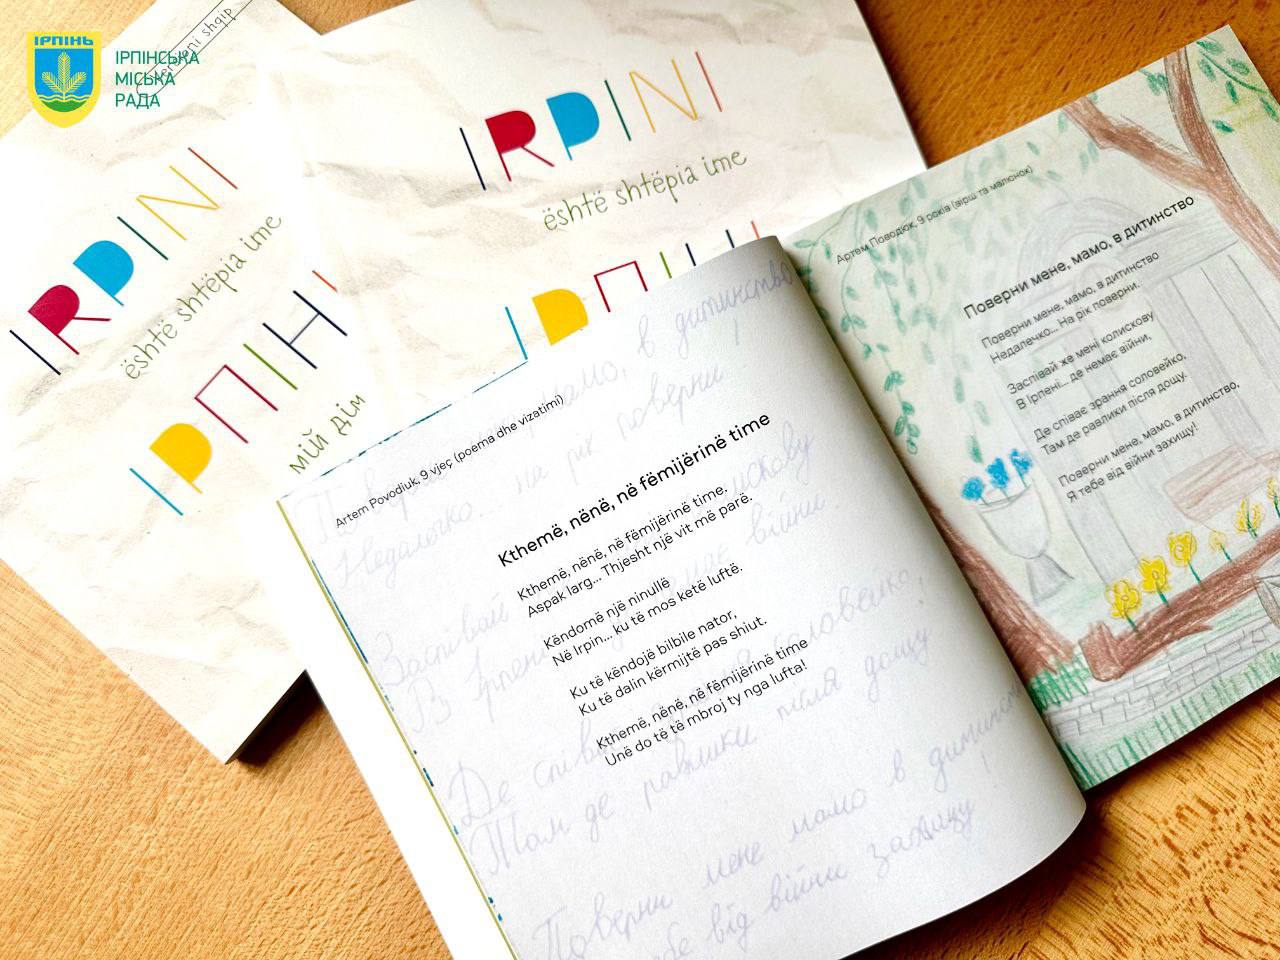 ІРПІНЬ
ІРПІНСЬКА
МІСЬКА
РАДА
shqip
IRPINI
është shtëpia ime
ІРПІНЬ
мій дім
IRPINI
është shtëpia ime
Artem Povodiuk, 9 vjeç (poema dhe vizatimi)
Kthemë, nënë, në fëmijërinë time
Kthemë, nënë, në fëmijërinë time,
Aspak larg... Thjesht një vit më parë.
Këndomë një ninullë
Në Irpin... ku të mos ketë luftë.
Ku të këndojë bilbile nator,
Ku të dalin kërmijtë pas shiut.
Kthemë, nënë, në fëmijërinë time
Unë do të të mbroj ty nga lufta!
мамо, в дитинство
Недалечко... на рік поверни!
Заспівай колискову
В Ірпені немає війни.
Де співає соловейко,
Там де равлики після дощу!
Поверни мене мамо в дитинство
від війни захищу!
Артем Поводюк, 9 років (вірш та малюнок)
Поверни мене, мамо, в дитинство
Поверни мене, мамо, в дитинство
Недалечко... На рік поверни.
Заспівай же мені колискову
В Ірпені... де немає війни,
Де співає зрання соловейко,
Там де равлики після дощу.
Поверни мене, мамо, в дитинство,
Я тебе від війни захищу!